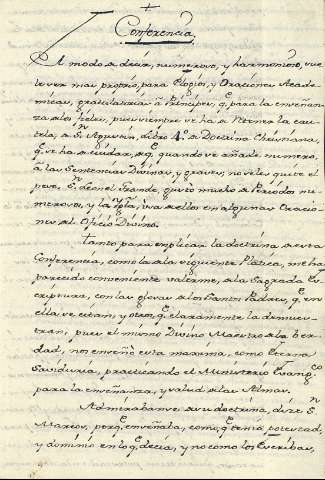 Conferencia.
El modo a decir, numeroso, y harmonioso, sue
le ser mas proprio, para Elogios, y Oraciones Acade
micas, gratulatorias â Principes, q. para la enseñan
za a los fieles, pues siempre se ha a Retener la cau
tela, a Sn Agustin, Libro 4o a Doctrina Christiana,
q. se ha a cuidar, q. quando se añade numero,
â las Sentencias Divinas, y graves, no se les quite el
peso. Sn Leon el Grande, gustó mucho a Periodos nu
merosos, y la Ygla. usa a ellos en algunas Oracio
nes al Oficio Divino.
Tanto para explicar la doctrina a esta
Conferencia, como la a la siguiente Platica, me ha
parecido conveniente valerme, a la Sagrada Es
criptura, con las glosas a los Santos Padres, q. en
ella se citan, y otros, q. claramente la demues
tran, pues el mismo Divino Maestro a la Ver
dad, nos enseñó esta maxima, como Eterna
Saviduria, practicando el Ministerio Evangco
para la enseñanza, y salud a las Almas.
Admirabanse a su doctrina, dize Sn
Marcos, porq. enseñaba, como q. tenia potestad,
y dominio en lo q. decia, y no como los Escribas,